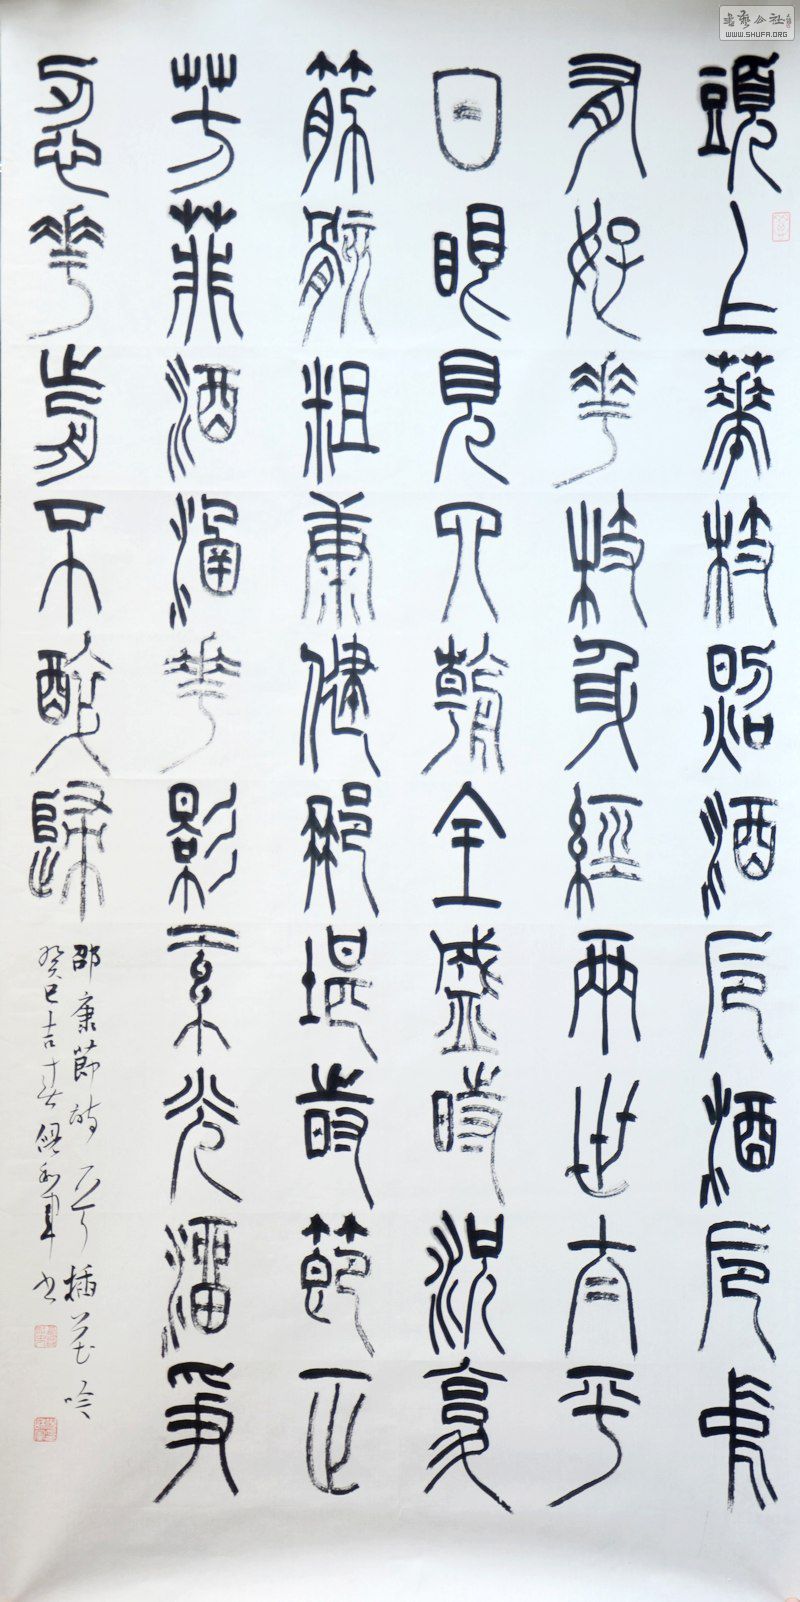 書藝公社
WWW.SHUFA.ORG
頭上華枝照酒卮酒卮中
有好花枝身經兩世太平
日眼見四朝全盛時況復
筋骸粗康健那堪時節正
芳菲酒涵花影紅光溜爭
忍花前不醉歸
邵康節詩一首插花吟
癸巳吉春 軍書